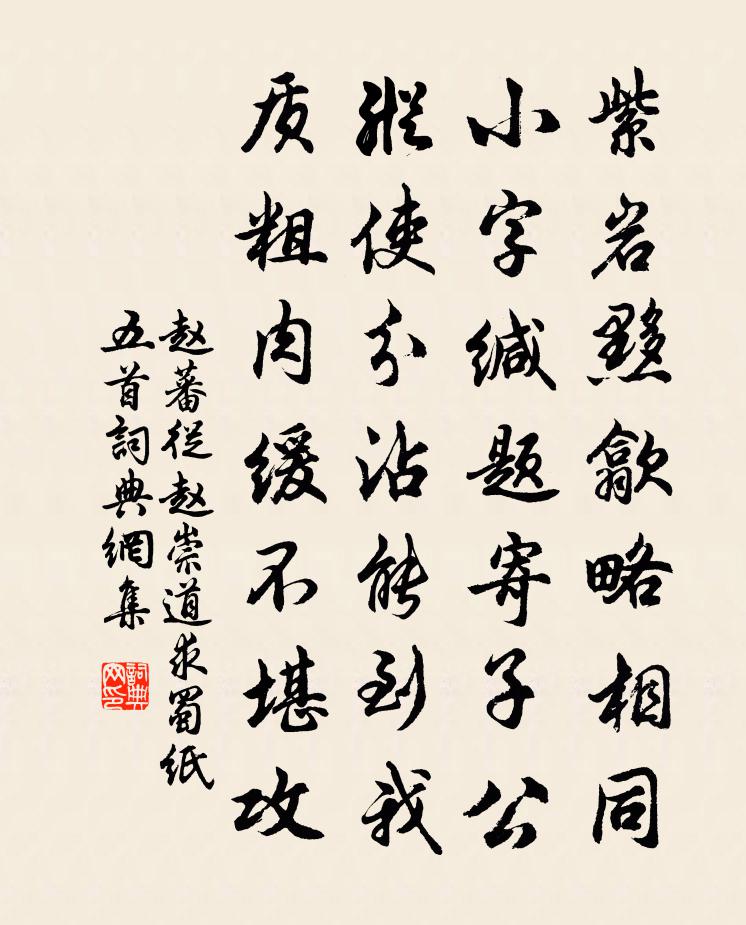 紫岩黟歙略相同
小字缄题寄子公
纵使分沾能到我
质粗肉缓不堪攻
赵蕃从赵崇道求蜀纸
五首詞典網集
詞典
网印